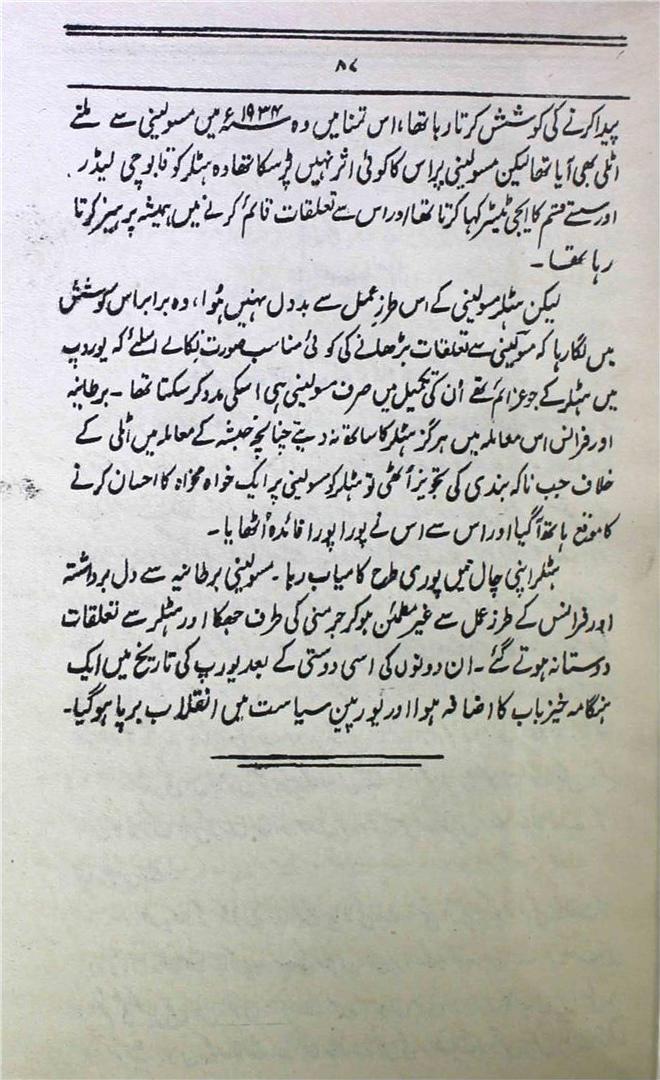 ۸۷
پیدا کرنے کی کوشش کرتا رہا تھا، اس تمنا میں وہ ۱۹۳۴ء میں مسولینی سے ملنے
اٹلی بھی آیا تھا لیکن مسولینی پر اس کا کوئی اثر نہیں پڑ سکا تھا وہ ہٹلر کو لیڈر
اور سستے قسم کا ایجی ٹیٹر کہا کرتا تھا اور اس سے تعلقات قائم کرنے میں ہمیشہ پرہیز کرتا
رہا تھا۔
لیکن ہٹلر مسولینی کے اس طرزِ عمل سے بددل نہیں ہُوا، وہ برابر اس کوشش
میں لگا رہا کہ مسولینی سے تعلقات بڑھانے کی کوئی مناسب صورت نکالے اسلئے کہ یوروپ
میں ہٹلر کے جو عزائم تھے اُن کی تکمیل میں صرف مسولینی ہی اسکی مدد کر سکتا تھا۔ برطانیہ
اور فرانس اس معاملہ میں ہرگز ہٹلر کا ساتھ نہ دیتے چنانچہ حبشہ کے معاملہ میں اٹلی کے
خلاف جب ناکہ بندی کی تجویز اُٹھی تو ہٹلر کو مسولینی پر ایک خواہ مخواہ کا احسان کرنے
کا موقع ہاتھ آگیا اور اس سے اس نے پورا پورا فائدہ اُٹھایا۔
ہٹلر اپنی چال میں پوری طرح کامیاب رہا۔ مسولینی برطانیہ سے دل برداشتہ
اور فرانس کے طرز عمل سے غیر مطمئن ہو کر جرمنی کی طرف جھکا اور ہٹلر سے تعلقات
دوستانہ ہوتے گئے۔ ان دونوں کی اسی دوستی کے بعد یورپ کی تاریخ میں ایک
ہنگامہ خیز باب کا اضافہ ہوا اور یورپین سیاست میں انقلاب برپا ہو گیا۔